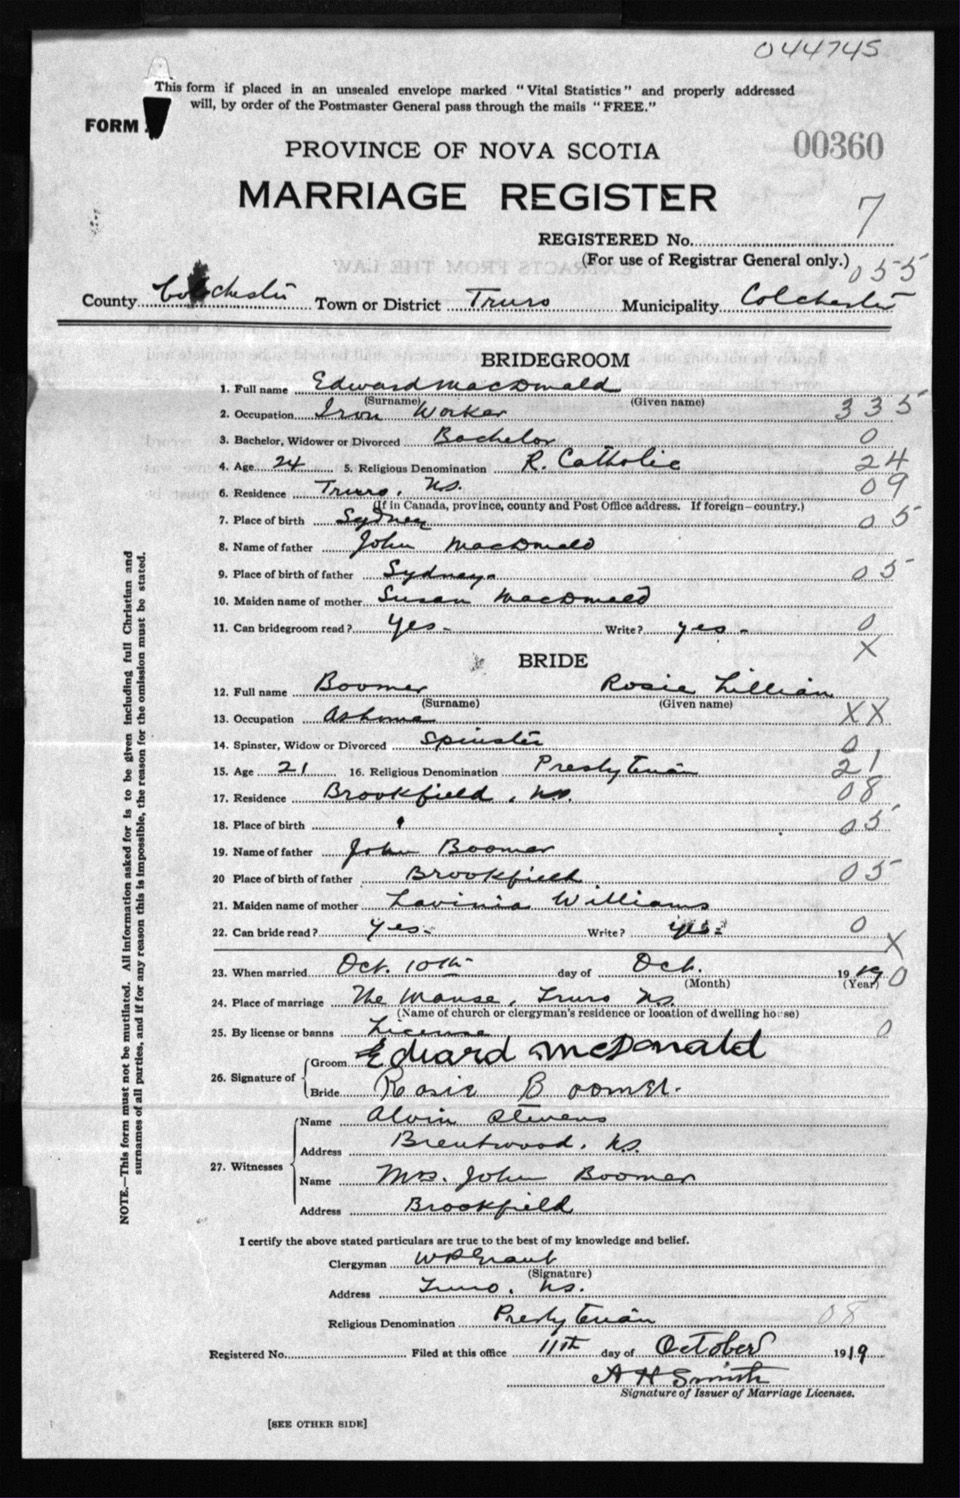 044745
This form if placed in an unsealed envelope marked "Vital Statistics" and properly addressed
will, by order of the Postmaster General pass through the mails "FREE."
FORM
PROVINCE OF NOVA SCOTIA
00360
MARRIAGE REGISTER
REGISTERED No. 7
(For use of Registrar General only.) 055
County Colchester Town or District Truro Municipality Colchester
BRIDEGROOM
1. Full name Edward MacDonald
(Surname) (Given name)
2. Occupation Iron Worker 335
3. Bachelor, Widower or Divorced Bachelor 0
4. Age 24 5. Religious Denomination R. Catholic 24
6. Residence Truro, N.S. 09
(If in Canada, province, county and Post Office address. If foreign—country.)
7. Place of birth Sydney 05
8. Name of father John MacDonald
9. Place of birth of father Sydney 05
10. Maiden name of mother Susan MacDonald
11. Can bridegroom read? Yes- Write? yes- 0
X
BRIDE
12. Full name Boomer Rosie Lillian
(Surname) (Given name)
13. Occupation At home XX
14. Spinster, Widow or Divorced Spinster 0
15. Age 21 16. Religious Denomination Presbyterian 21
17. Residence Brookfield, N.S. 08
18. Place of birth " 05
19. Name of father John Boomer
20 Place of birth of father Brookfield 05
21. Maiden name of mother Lavinia Williams
22. Can bride read? Yes- Write? yes- 0
X
23. When married Oct. 10th day of Oct. 1919 0
(Month) (Year)
24. Place of marriage The Manse, Truro N.S.
(Name of church or clergyman's residence or location of dwelling house)
25. By license or banns License 0
26. Signature of
Groom Edward McDonald
Bride Rosie Boomer.
27. Witnesses
Name Alvin Stevens
Address Brentwood, N.S.
Name Mrs. John Boomer
Address Brookfield
I certify the above stated particulars are true to the best of my knowledge and belief.
Clergyman W P Grant
(Signature)
Address Truro, N.S.
Religious Denomination Presbyterian 08
Registered No. Filed at this office 11th day of October 1919
A H Smith
Signature of Issuer of Marriage Licenses.
[SEE OTHER SIDE]
NOTE.—This form must not be mutilated. All information asked for is to be given including full Christian and
surnames of all parties, and if for any reason this is impossible, the reason for the omission must be stated.